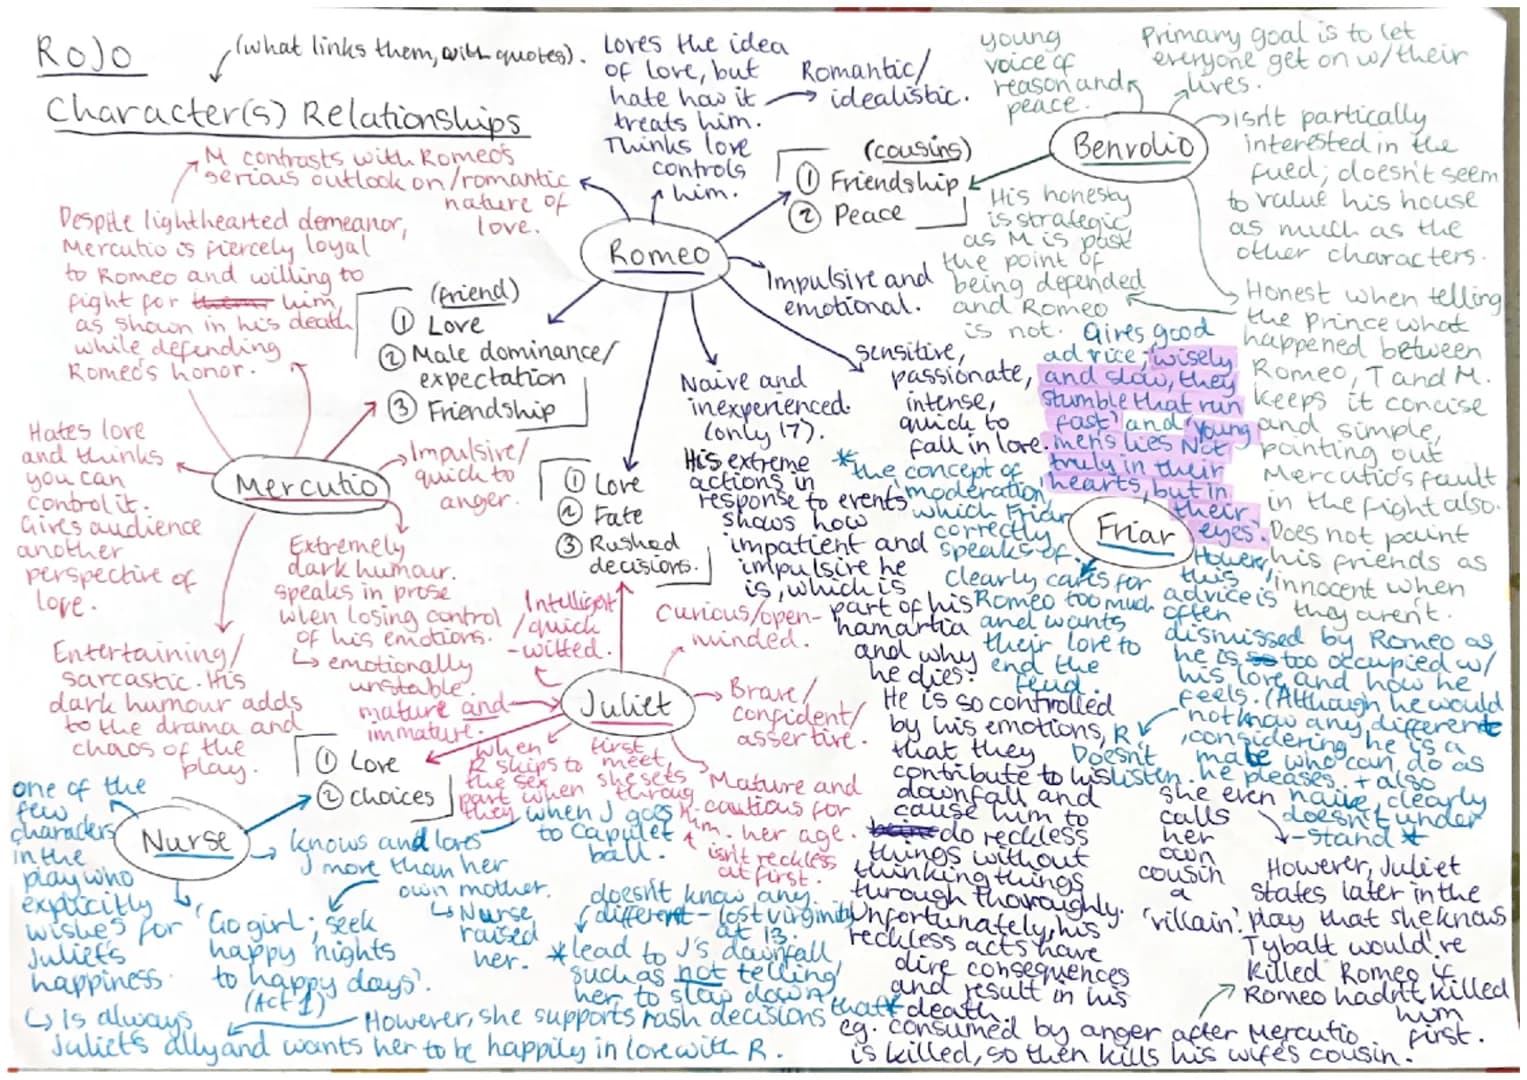 ROJO
(what links them, with quotes).
Character(s) Relationships
Loves the idea
of love, but
hate how it
treats him.
Thinks love
controls
him.
Romantic/
idealistic.
young
voice of
reason and
peace.
Primary goal is to let
everyone get on w/their
lives.
Benvolio
isn't partically
interested in the
fued; doesn't seem
to value his house
as much as the
other characters.
(cousins)
① Friendship
② Peace
M contrasts with Romeo's
serious outlook on/romantic
nature of
love.
Romeo
Impulsive and
emotional.
His honesty
is strategic,
as M is past
the point of
being defended
and Romeo
is not.
Honest when telling
the Prince what
happened between
Romeo, T and M.
Keeps it concise
and simple,
pointing out
Mercutio's fault
in the fight also.
Does not paint
his friends as
innocent when
they aren't.
Despite lighthearted demeanor,
Mercutio is fiercely loyal
to Romeo and willing to
fight for them him,
as shown in his death
while defending
Romeo's honor.
(friend)
① Love
② Male dominance/
expectation
③ Friendship
Naive and
inexperienced.
(only 17).
His extreme
actions in
response to events
shows how
impatient and
impulsive he
is, which is
part of his
hamartia
and why
he dies.
He is so controlled
by his emotions,
that they
contribute to his
downfall and
cause him to
do reckless
things without
thinking things
through thoroughly.
Unfortunately, his
reckless acts have
dire consequences
and result in his
death.
eg. consumed by anger after Mercutio
is killed, so then kills his wife's cousin.
sensitive,
passionate,
intense,
quick to
fall in love.
Gives good
advice; 'wisely
and slow, they
stumble that run
fast' and 'young
men's lies Not
truly in their
hearts, but in
their
eyes'.
*the concept of
moderation,
which Friar
correctly
speaks of.
Friar
clearly cares for
Romeo too much
and wants
their love to
end the
feud.
However,
this
advice is
often
dismissed by Romeo as
he is so too occupied w/
his love and how he
feels. (Although he would
not know any different
, considering he is a
male who can do as
he pleases. + also
naive, clearly
doesn't under
-stand *
R
Doesn't
listen.
Hates love
and thinks
you can
control it.
Gives audience
another
perspective of
love.
Mercutio
Impulsive/
quick to
anger.
① Love
② Fate
③ Rushed
decisions.
Extremely
dark humour.
speaks in prose
when losing control
of his emotions.
↳ emotionally
unstable.
Entertaining/
sarcastic. His
dark humour adds
to the drama and
chaos of the
play.
Intelligent
/quick
-witted.
curious/open-
minded.
Juliet
Brave/
confident/
assertive.
mature and
immature.
when
R skips to
the sex
part when
they
first
meet,
she sets
him.
Mature and
cautious for
her age.
isn't reckless
at first.
① Love
② choices
one of the
few
characters
in the
play who
explicitly
wishes for
Juliet's
happiness.
Nurse
knows and loves
J more than her
own mother.
↳ Nurse
raised
her.
when J goes
to Capulet
ball.
'Go girl; seek
happy nights
to happy days'.
(Act 1)
doesn't know any
different - lost virginity
at 13.
*lead to J's downfall,
such as not telling
her to slow down
↳ Is always
Juliet's ally and wants her to be happily in love with R.
However, she supports rash decisions that*
she even
calls
her
own
cousin
a
'villain'.
However, Juliet
states later in the
play that she knows
Tybalt would've
killed Romeo if
Romeo hadn't killed
him
first.